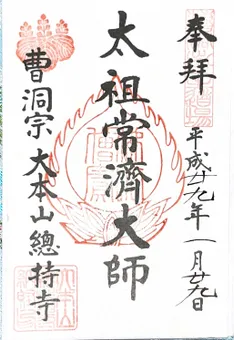 奉拝
平成廿九年一月廿九日
太祖常濟大師
曹洞宗大本山總持寺